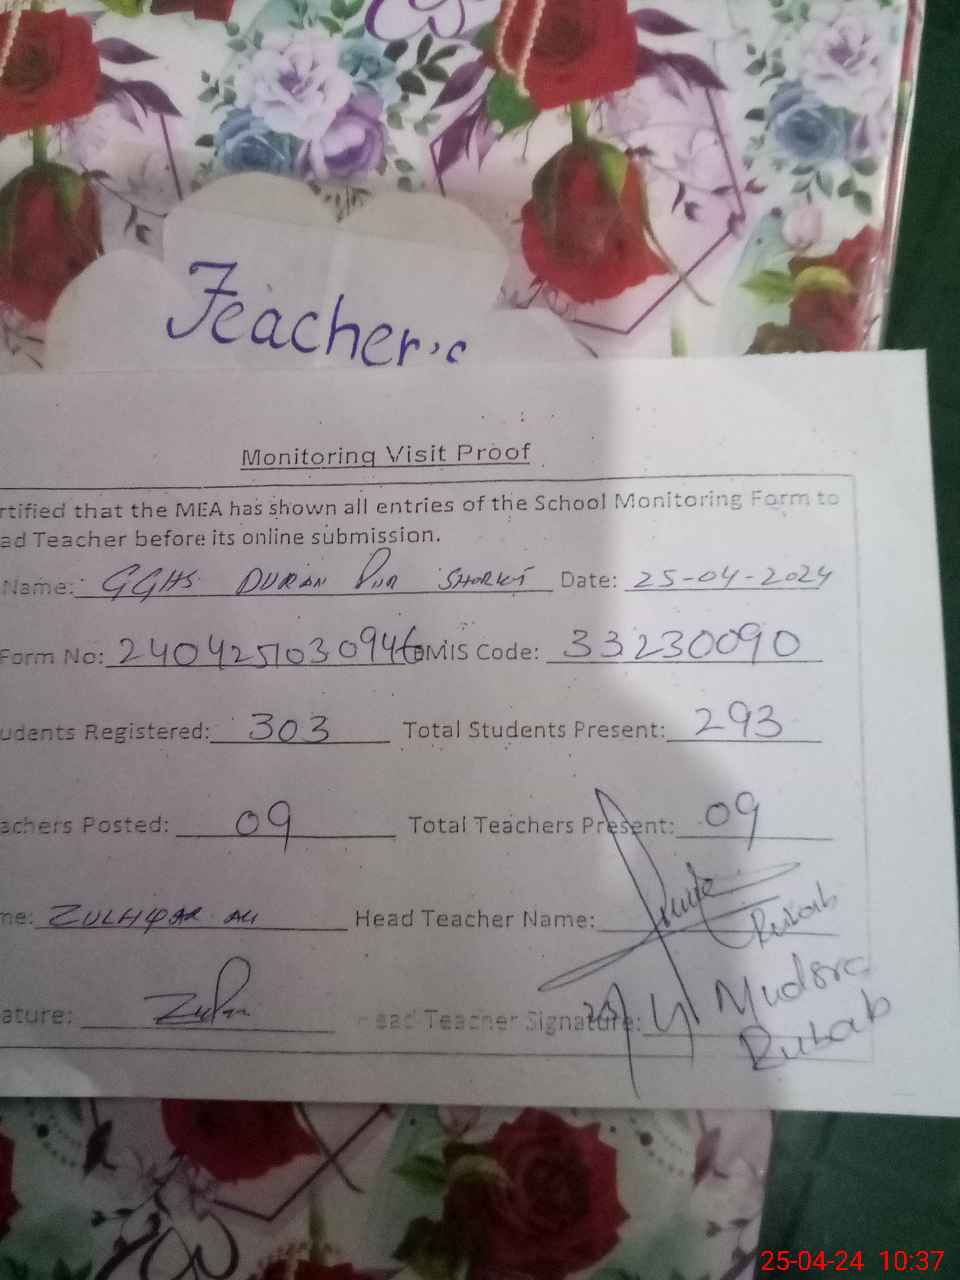 Teacher's
Monitoring Visit Proof
rtified that the MEA has shown all entries of the School Monitoring Form to
ad Teacher before its online submission.
Name: GGHS DURAN PUR SHORKOT Date: 25-04-2024
Form No: 2404251030946 EMIS Code: 33230090
udents Registered: 303 Total Students Present: 293
achers Posted: 09 Total Teachers Present: 09
me: ZULFIQAR ALI Head Teacher Name:
Rubab
ature: Head Teacher Signature:
Rubab
25-04-24 10:37